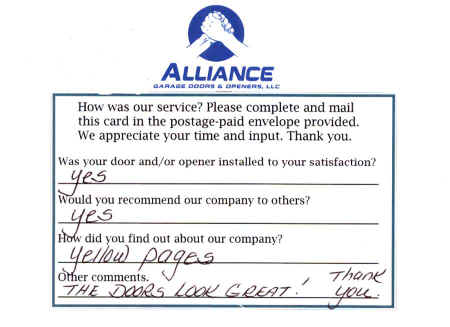 ALLIANCE
GARAGE DOORS & OPENERS, LLC
How was our service? Please complete and mail
this card in the postage-paid envelope provided.
We appreciate your time and input. Thank you.
Was your door and/or opener installed to your satisfaction?
yes
Would you recommend our company to others?
yes
How did you find out about our company?
yellow pages
Other comments.
THE DOORS LOOK GREAT! Thank
you.